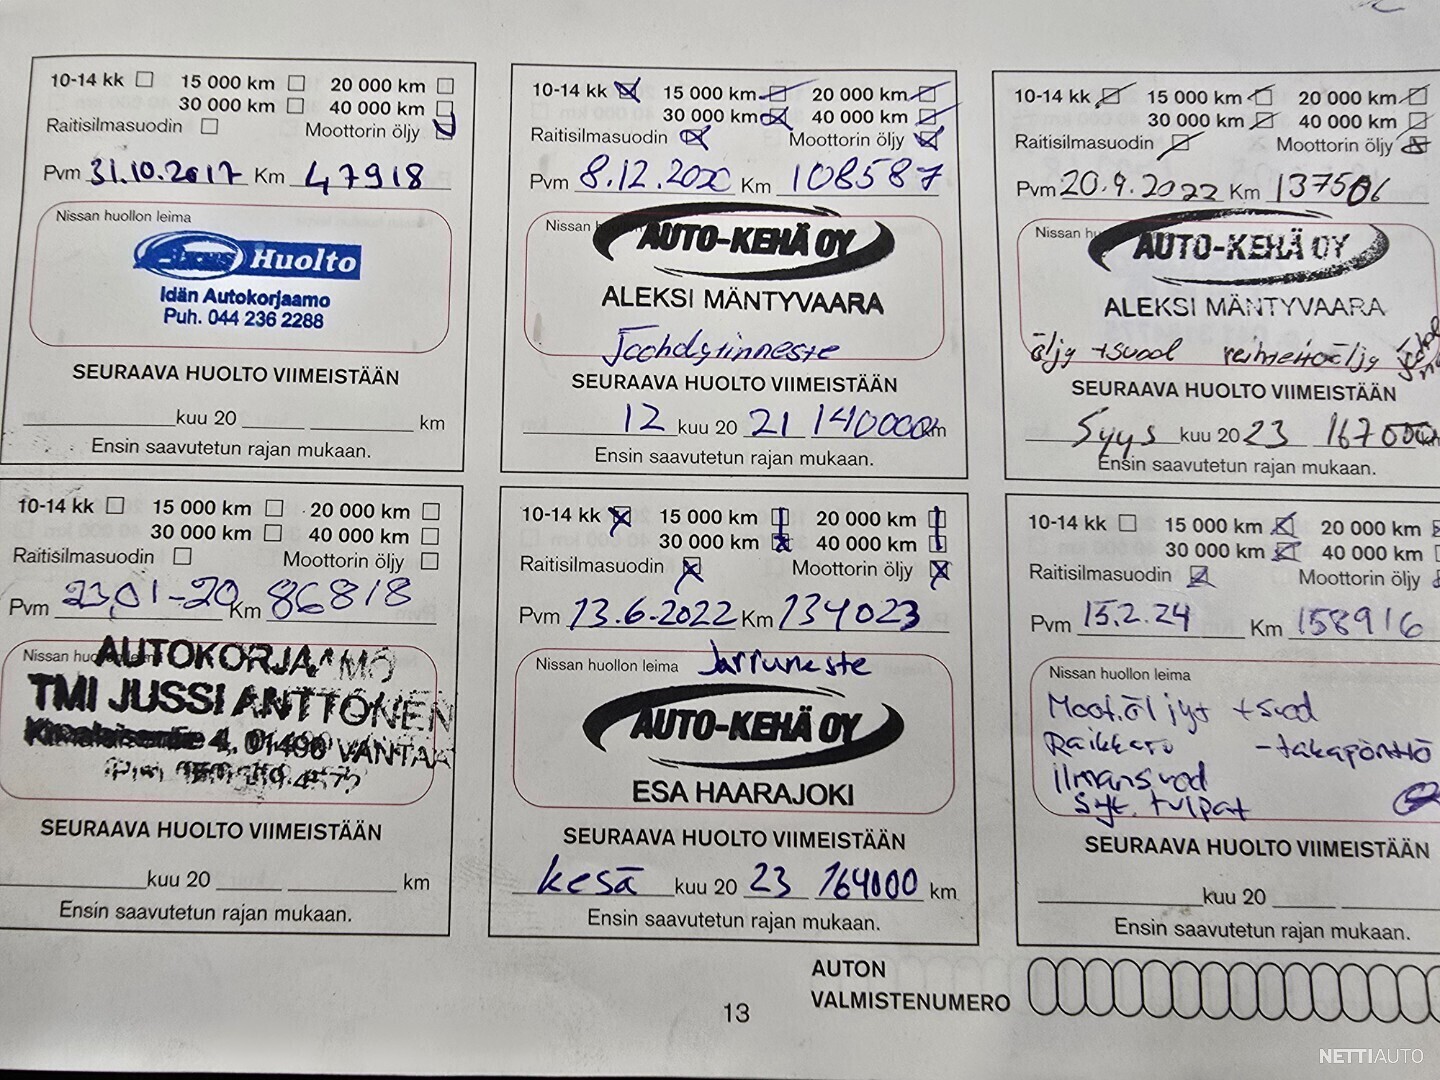 10-14 kk 15 000 km 20 000 km
30 000 km 40 000 km
Raitisilmasuodin Moottorin öljy
Pvm 31.10.2017 Km 47918
Nissan huollon leima
Huolto
Idän Autokorjaamo
Puh. 044 236 2288
SEURAAVA HUOLTO VIIMEISTÄÄN
kuu 20 km
Ensin saavutetun rajan mukaan.
10-14 kk 15 000 km 20 000 km
30 000 km 40 000 km
Raitisilmasuodin Moottorin öljy
Pvm 8.12.2020 Km 108587
Nissan
AUTO-KEHÄ OY
ALEKSI MÄNTYVAARA
Jäähdytinneste
SEURAAVA HUOLTO VIIMEISTÄÄN
12 kuu 20 21 140000 km
Ensin saavutetun rajan mukaan.
10-14 kk 15 000 km 20 000 km
30 000 km 40 000 km
Raitisilmasuodin Moottorin öljy
Pvm 20.9.2022 Km 137506
Nissan
AUTO-KEHÄ OY
ALEKSI MÄNTYVAARA
öljy + suod
SEURAAVA HUOLTO VIIMEISTÄÄN
Syys kuu 20 23 167000 km
Ensin saavutetun rajan mukaan.
10-14 kk 15 000 km 20 000 km
30 000 km 40 000 km
Raitisilmasuodin Moottorin öljy
Pvm 23.01-20 Km 86818
Nissan huollon leima
AUTOKORJAAMO
TMI JUSSI ANTTONEN
4, 01490 VANTAA
SEURAAVA HUOLTO VIIMEISTÄÄN
kuu 20 km
Ensin saavutetun rajan mukaan.
10-14 kk 15 000 km 20 000 km
30 000 km 40 000 km
Raitisilmasuodin Moottorin öljy
Pvm 13.6-2022 Km 134023
Nissan huollon leima Jarruneste
AUTO-KEHÄ OY
ESA HAARAJOKI
SEURAAVA HUOLTO VIIMEISTÄÄN
kesä kuu 20 23 164000 km
Ensin saavutetun rajan mukaan.
10-14 kk 15 000 km 20 000 km
30 000 km 40 000 km
Raitisilmasuodin Moottorin öljy
Pvm 15.2.24 Km 158916
Nissan huollon leima
Moot.öljyt + suod
Raikkaro - takapönttö
ilmansuod
Syt. tulpat
SEURAAVA HUOLTO VIIMEISTÄÄN
kuu 20
Ensin saavutetun rajan mukaan.
AUTON
VALMISTENUMERO
13
NETTIAUTO